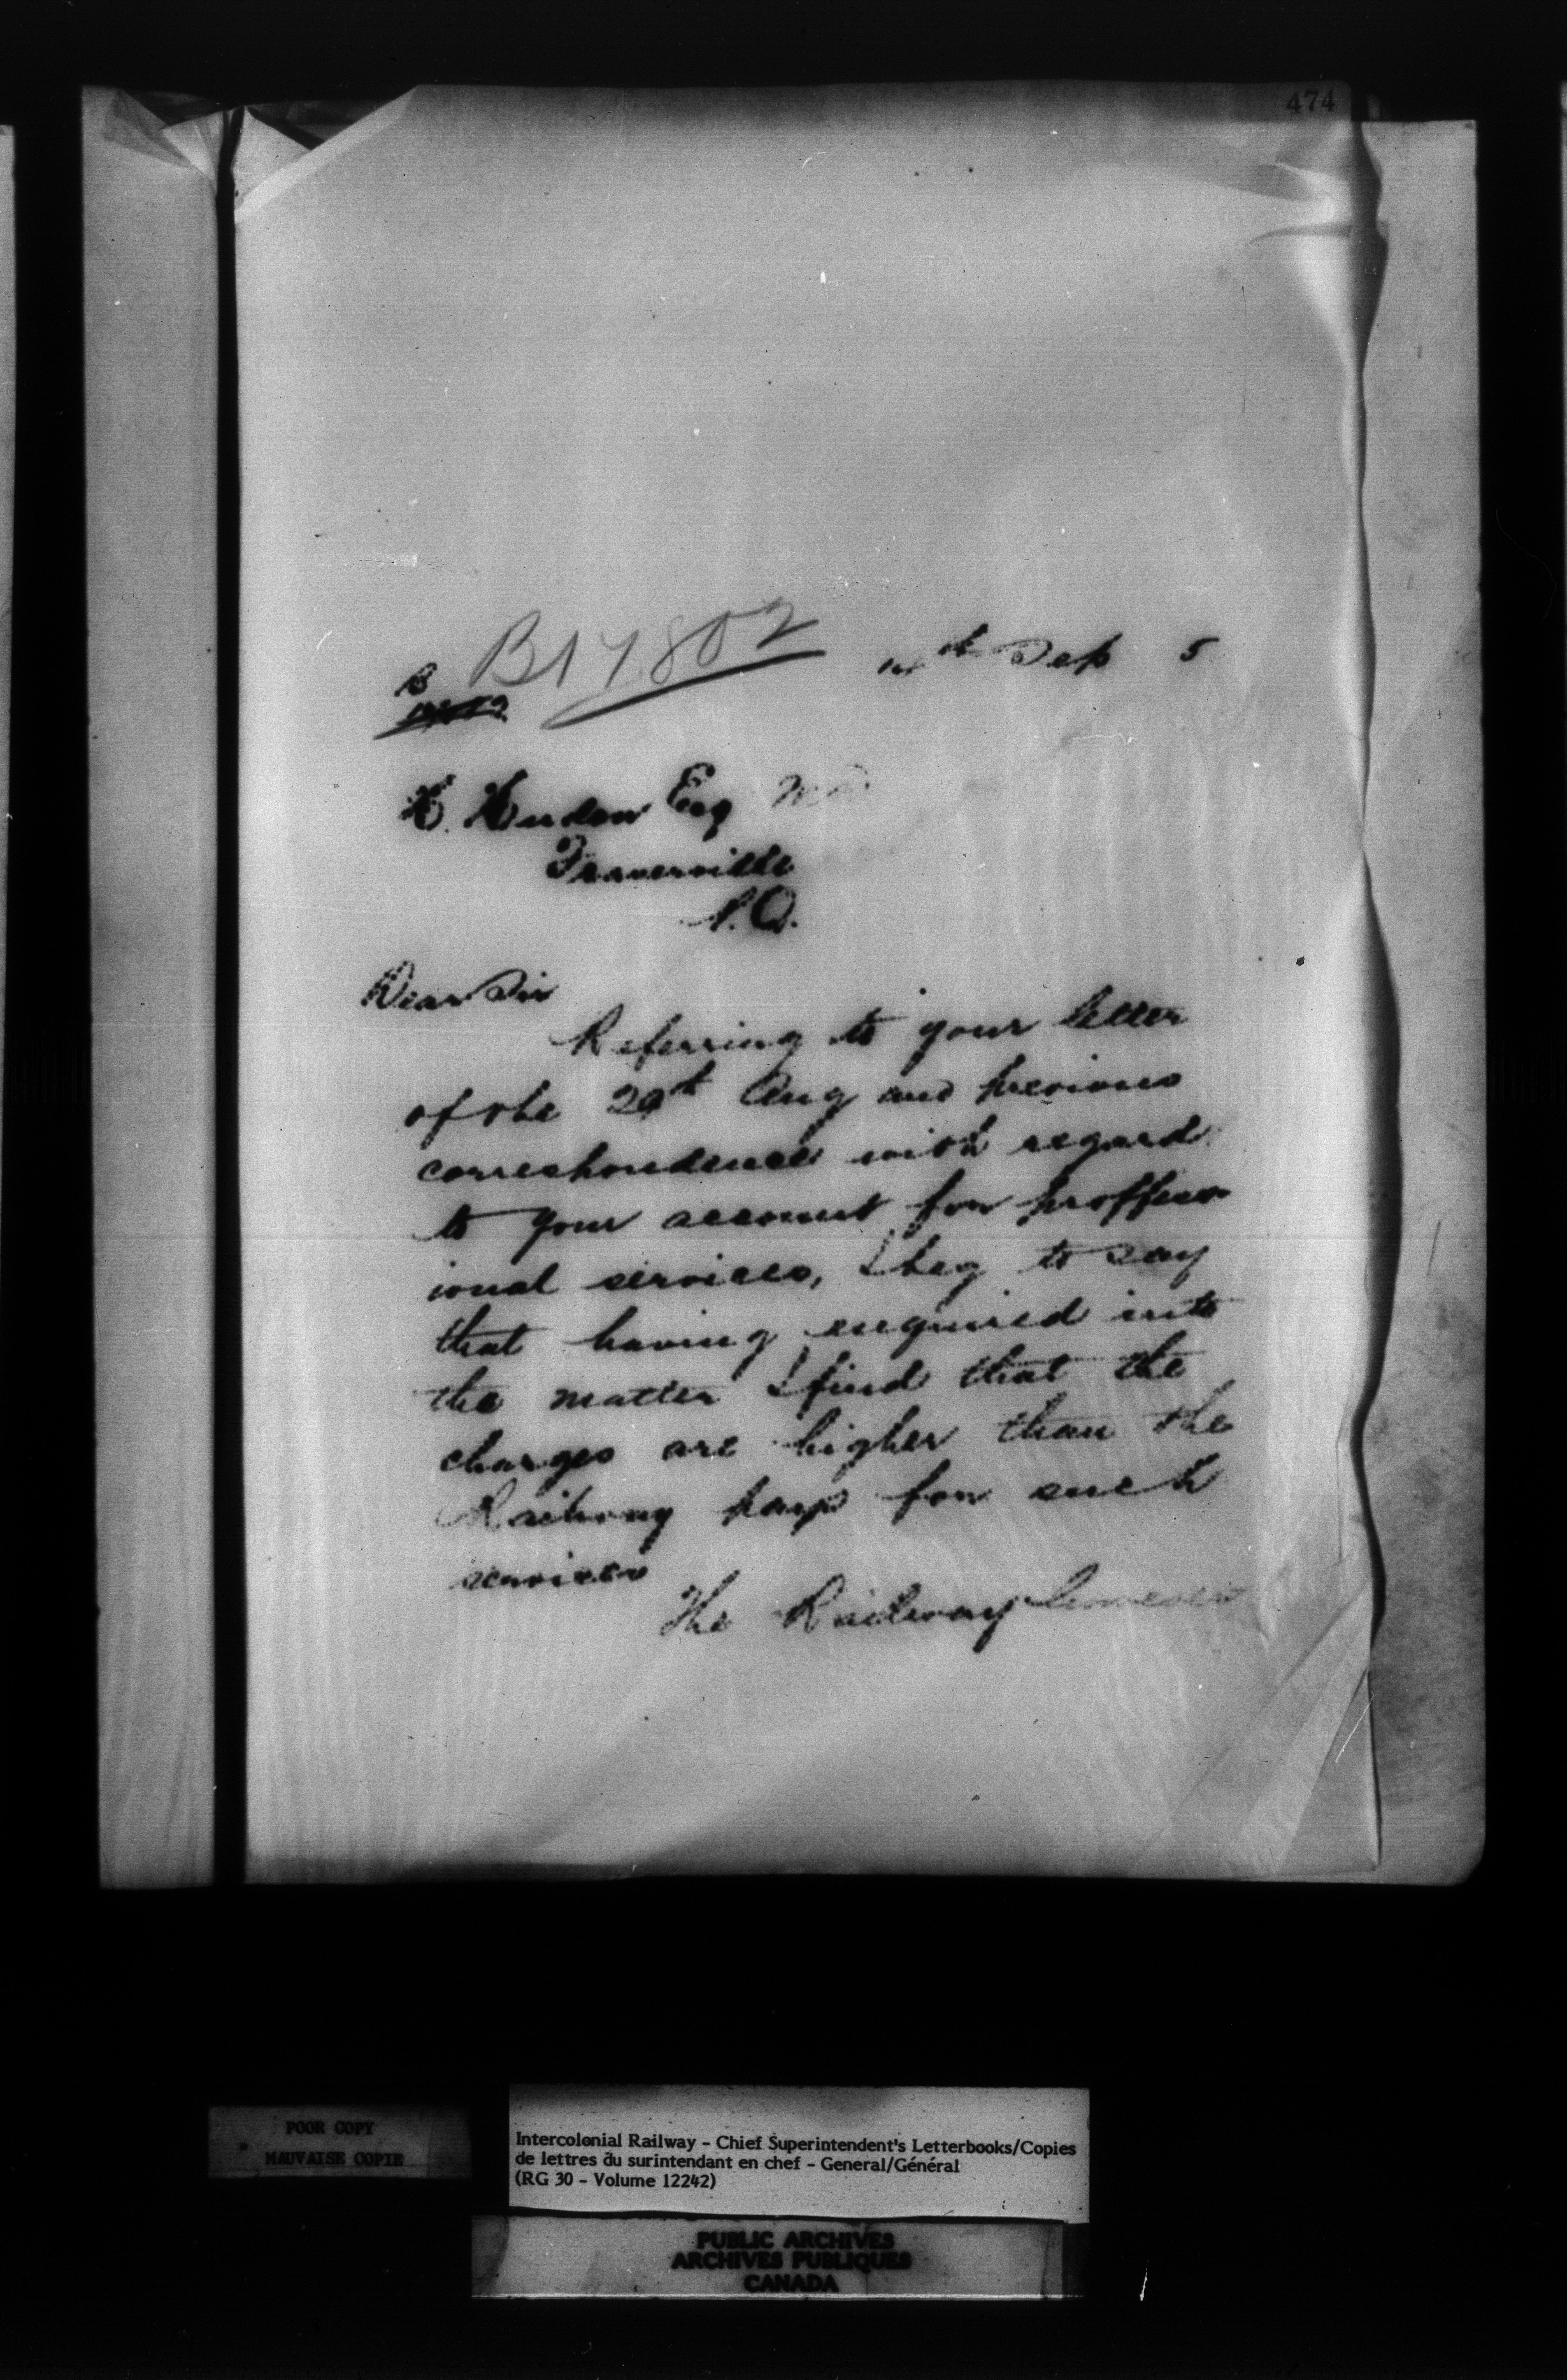 474
B17802
th Sep 5
B
H. Hudon Esq M.D.
Fraserville
P.Q.
Dear Sir
Referring to your letter
of the 29th Aug and previous
correspondence with regard
to your account for proffess-
ional services, I beg to say
that having enquired into
the matter I find that the
charges are higher than the
Railway pays for such
services
The Railway however
POOR COPY
MAUVAISE COPIE
Intercolonial Railway - Chief Superintendent's Letterbooks/Copies
de lettres du surintendant en chef - General/Général
(RG 30 - Volume 12242)
PUBLIC ARCHIVES
ARCHIVES PUBLIQUES
CANADA